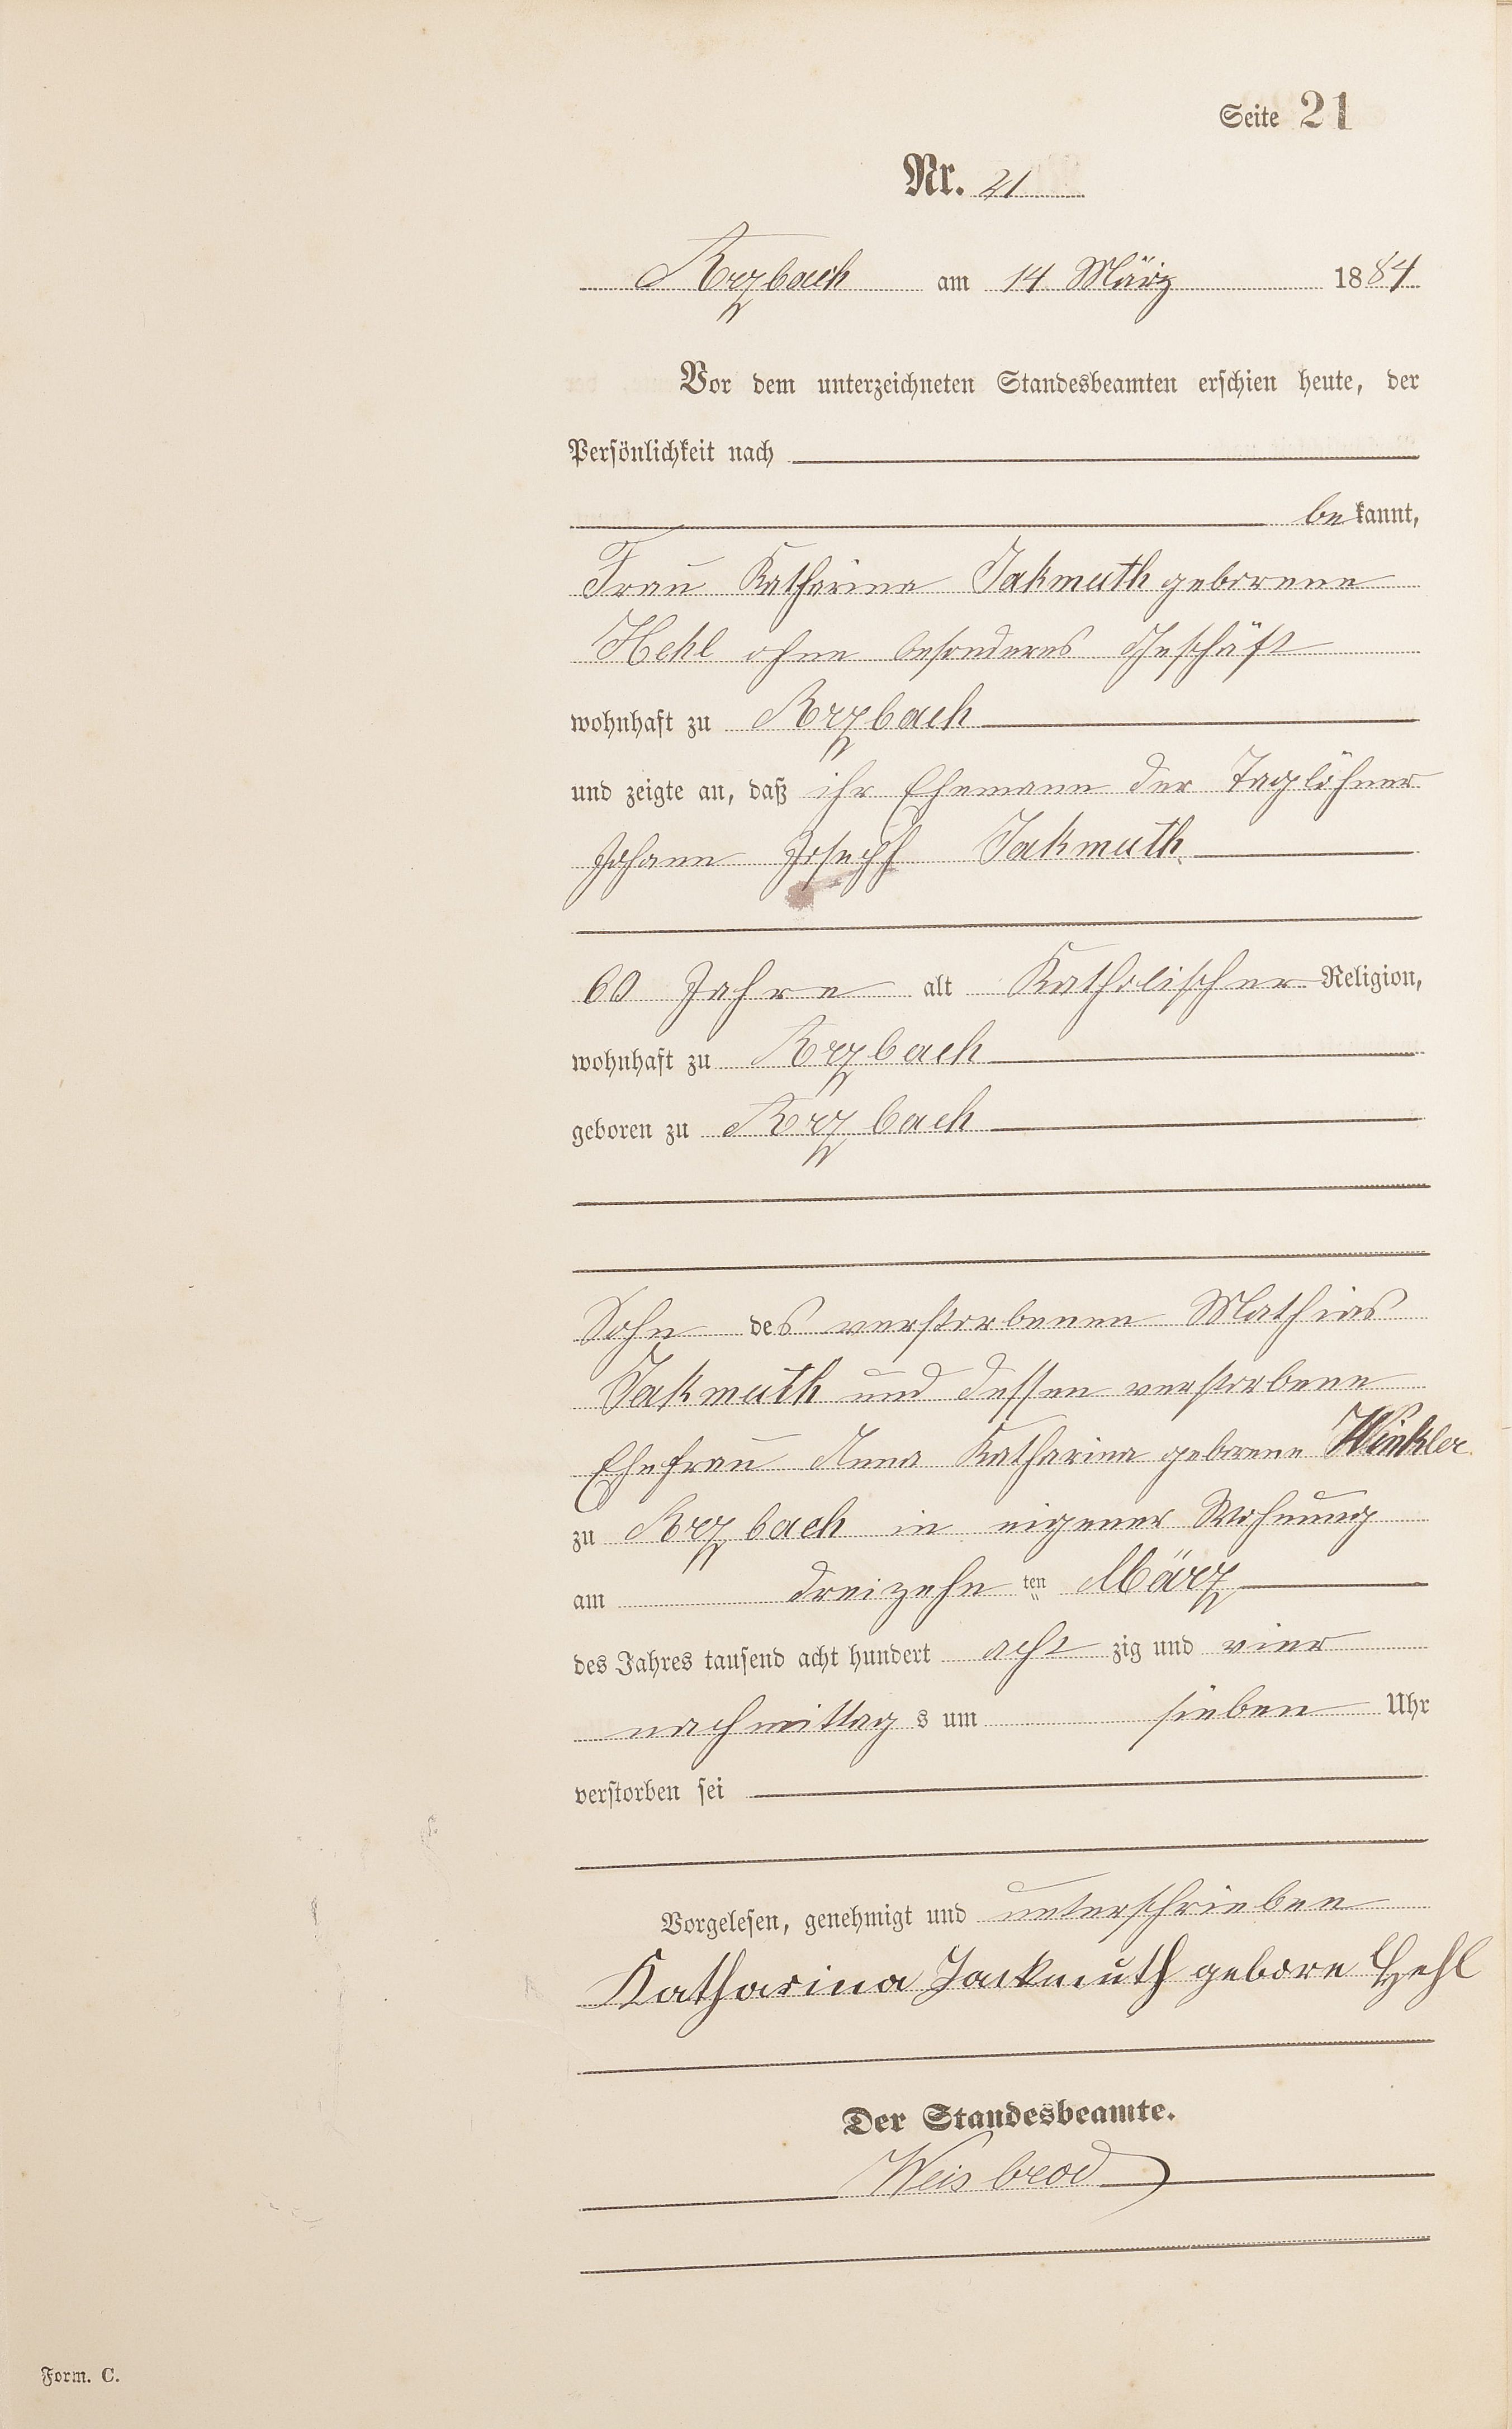 Seite 21
Nr. 21
Arzbach am 14 März 1884
Vor dem unterzeichneten Standesbeamten erschien heute, der
Persönlichkeit nach
bekannt,
Frau Katharina Jakmuth geborene
Hehl ohne besonderes Geschäft
wohnhaft zu Arzbach
und zeigte an, daß ihr Ehemann der Taglöhner
Johann Joseph Jakmuth
60 Jahre alt Katholischer Religion,
wohnhaft zu Arzbach
geboren zu Arzbach
Sohn des verstorbenen Mathias
Jakmuth und dessen verstorbene
Ehefrau Anna Katharina geborene Winkler
zu Arzbach in eigener Wohnung
am dreizehn ten März
des Jahres tausend acht hundert acht zig und vier
nachmittag s um sieben Uhr
verstorben sei
Vorgelesen, genehmigt und unterschrieben
Katharina Jackmuth gebore Hehl
Der Standesbeamte.
Weisbrod
Form. C.